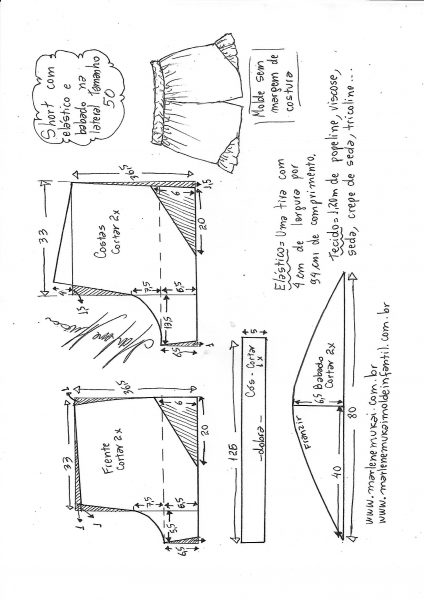 Short com
elástico e
babado na
lateral Tamanho
50
Molde sem
margem de
costura
Elástico = Uma tira com
4 cm de largura por
94 cm de comprimento.
Tecido = 1,20m de popeline, viscose,
seda, crepe de seda, tricoline...
36,5
1,5
33
Costas
Cortar 2x
6
20
4
1,5
7,5
6,5
13,5
6,5
1
1
36,5
33
Frente
Cortar 2x
6
20
1
1
7,5
6,5
5,5
6,5
1
5
Cós - Cortar
1x
-dobra-
126
Franzir
6,5 Babado
Cortar 2x
40
80
www.marlenemukai.com.br
www.marlenemukaimoldeinfantil.com.br